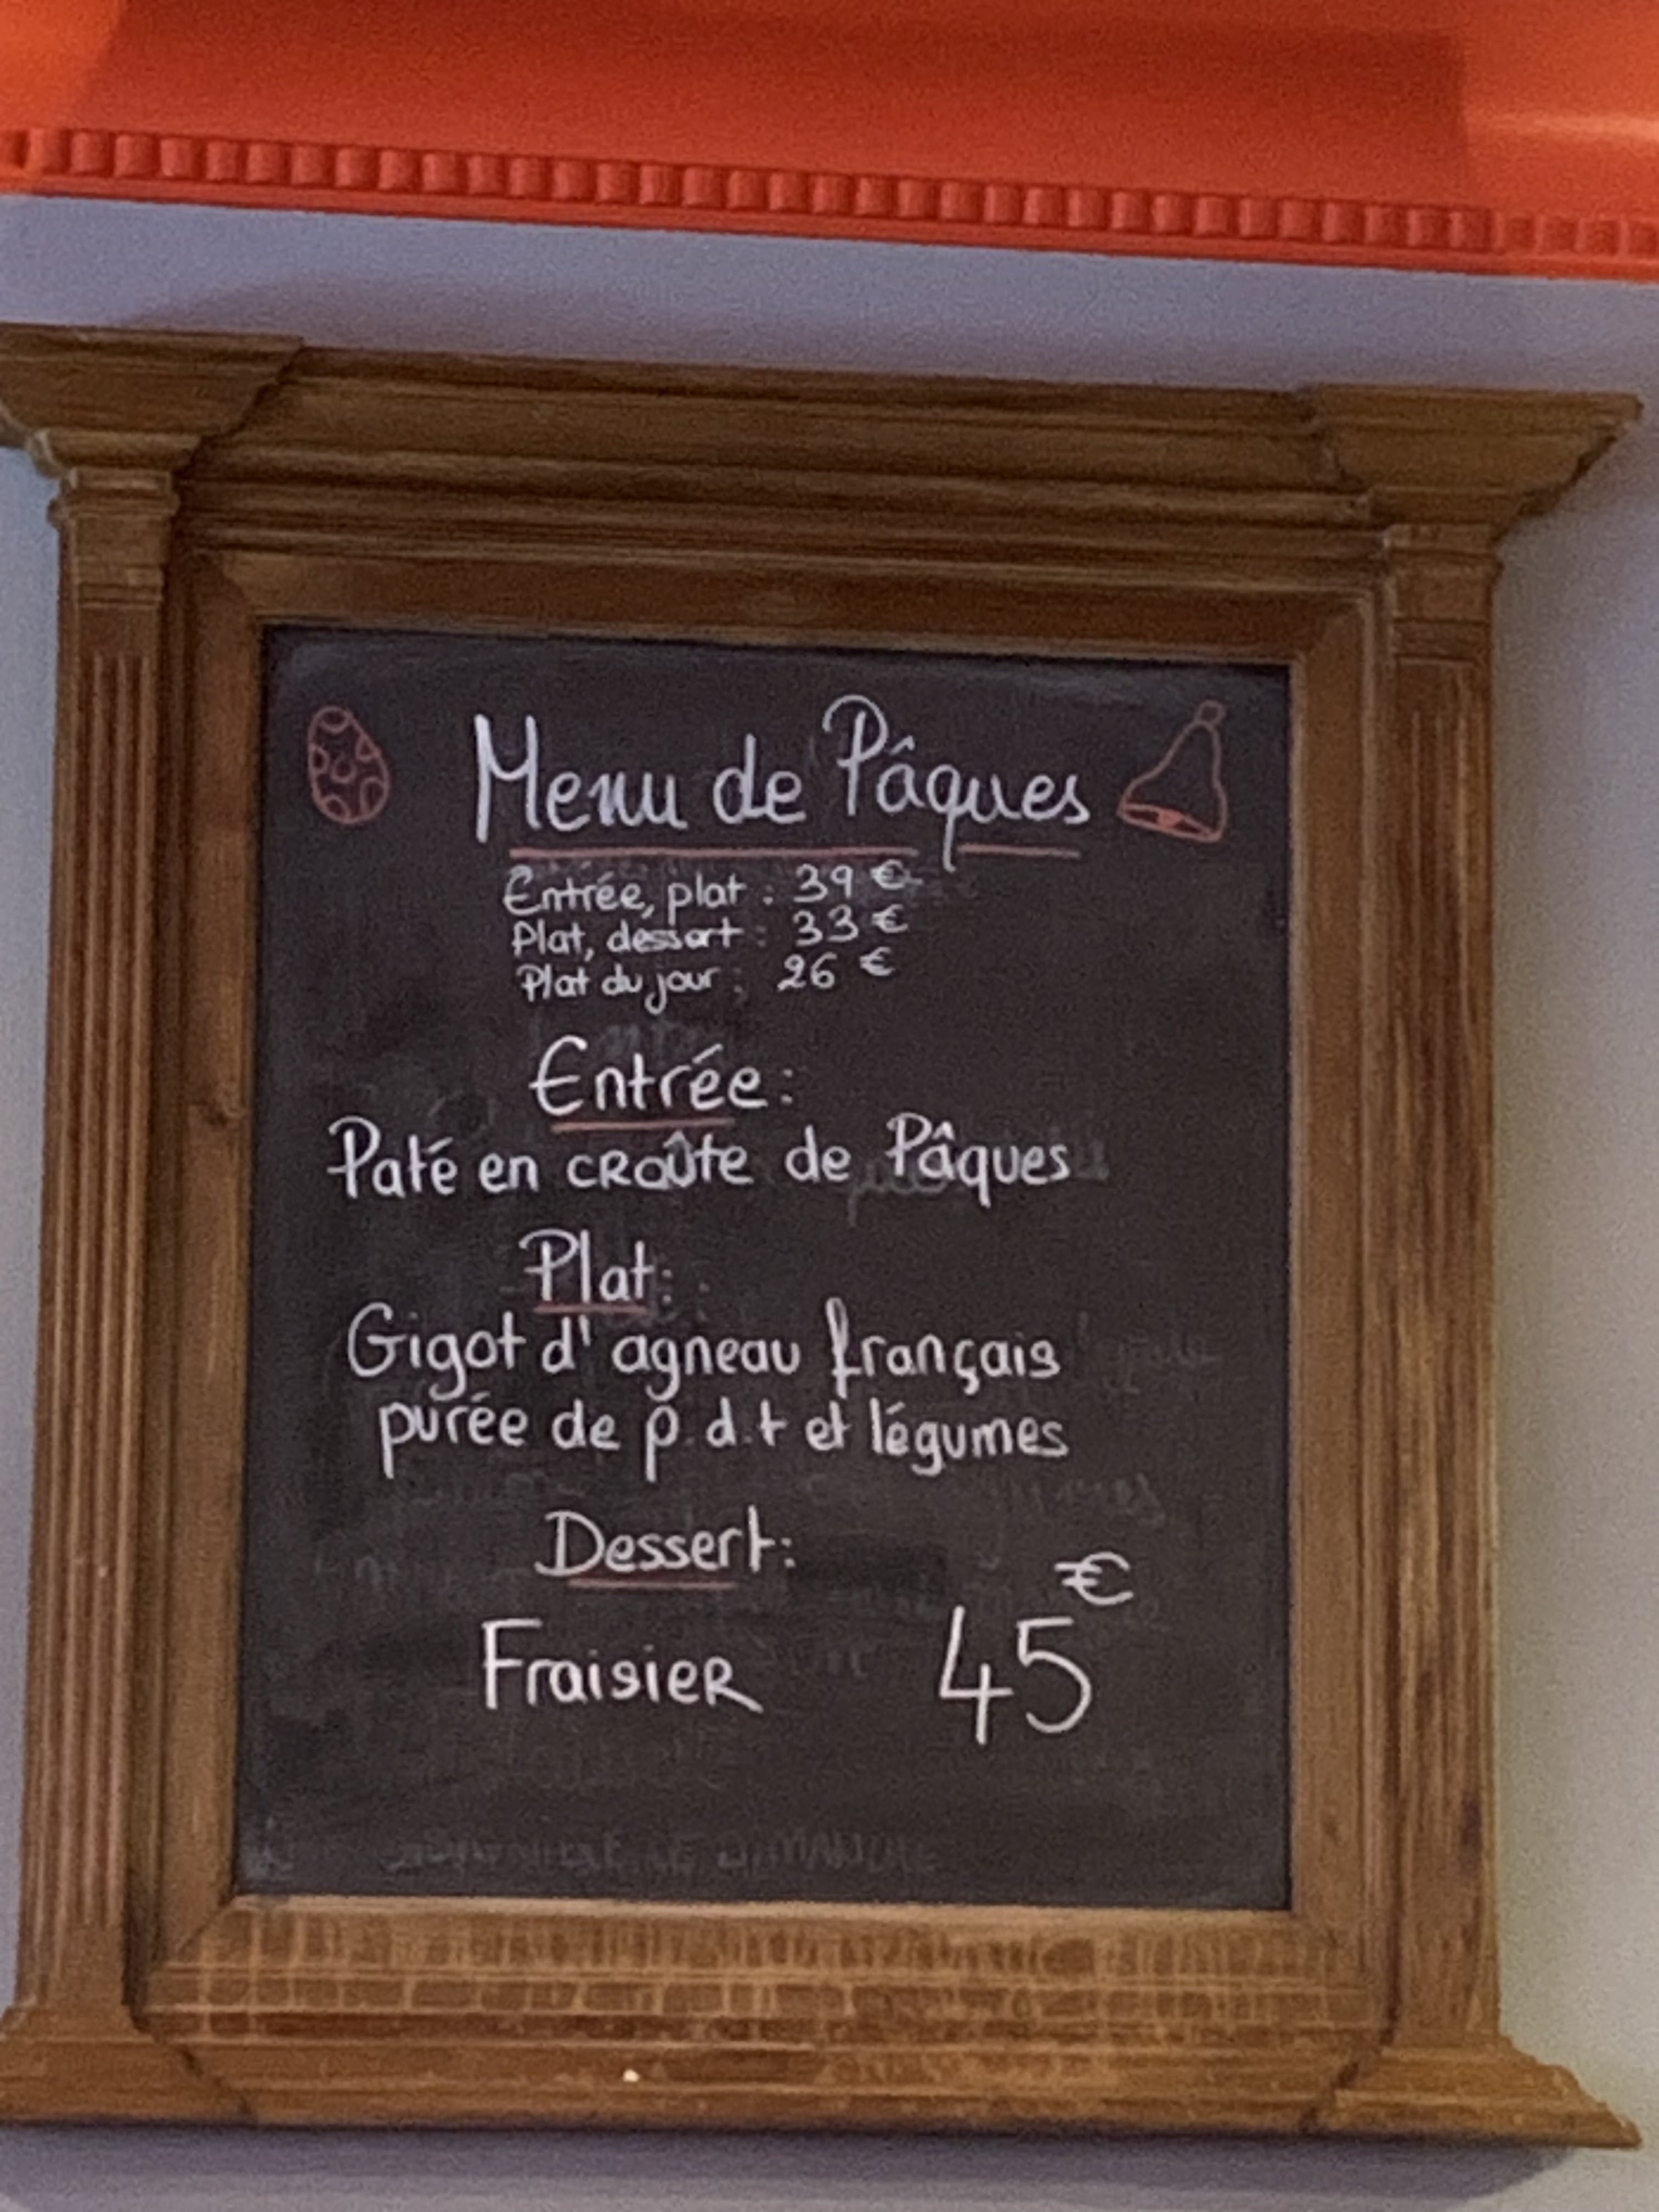 Menu de Pâques
Entrée, plat : 39 €
Plat, dessert : 33 €
Plat du jour : 26 €
Entrée :
Paté en croûte de Pâques
Plat :
Gigot d'agneau français
purée de p.d.t et légumes
Dessert :
Fraisier 45 €